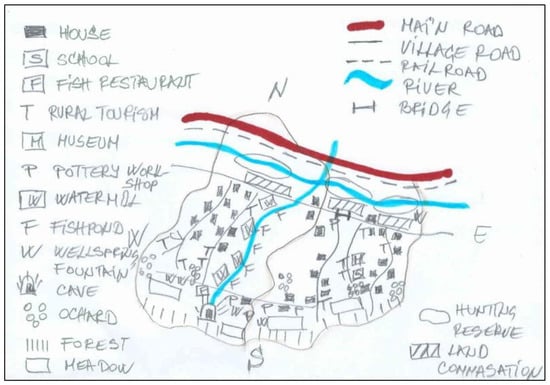 HOUSE
S SCHOOL
F FISH RESTAURANT
T RURAL TOURISM
M MUSEUM
P POTTERY WORK
SHOP
W WATERMILL
F FISHPOND
W WELLSPRING
FOUNTAIN
CAVE
OCHARD
FOREST
MEADOW
MAIN ROAD
VILLAGE ROAD
RAILROAD
RIVER
BRIDGE
N
W
E
S
HUNTING
RESERVE
LAND
COMMASATION